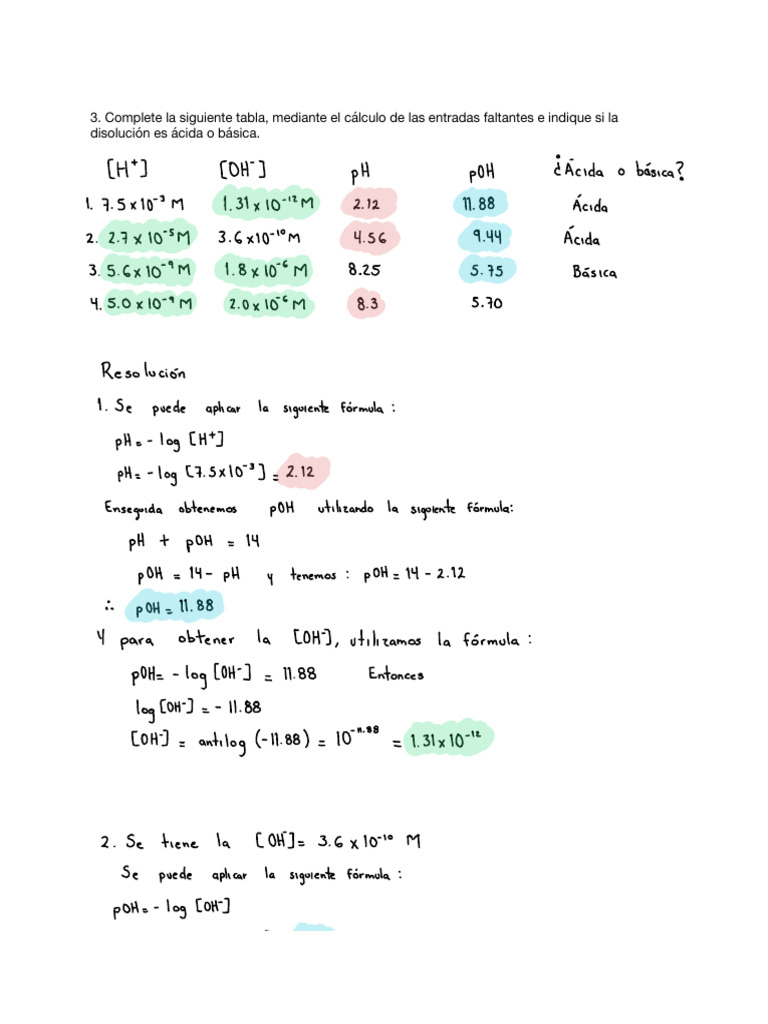 3. Complete la siguiente tabla, mediante el cálculo de las entradas faltantes e indique si la
disolución es ácida o básica.
[H⁺] [OH⁻] pH pOH ¿Ácida o básica?
1. 7.5 x 10⁻³ M 1.31 x 10⁻¹² M 2.12 11.88 Ácida
2. 2.7 x 10⁻⁵ M 3.6 x 10⁻¹⁰ M 4.56 9.44 Ácida
3. 5.6 x 10⁻⁹ M 1.8 x 10⁻⁶ M 8.25 5.75 Básica
4. 5.0 x 10⁻⁹ M 2.0 x 10⁻⁶ M 8.3 5.70
Resolución
1. Se puede aplicar la siguiente fórmula :
pH = - log [H⁺]
pH = - log [7.5 x 10⁻³] = 2.12
Enseguida obtenemos pOH utilizando la siguiente fórmula:
pH + pOH = 14
pOH = 14 - pH y tenemos : pOH = 14 - 2.12
∴ pOH = 11.88
Y para obtener la [OH⁻], utilizamos la fórmula :
pOH = - log [OH⁻] = 11.88 Entonces
log [OH⁻] = - 11.88
[OH⁻] = antilog (-11.88) = 10⁻¹¹·⁸⁸ = 1.31 x 10⁻¹²
2. Se tiene la [OH⁻] = 3.6 x 10⁻¹⁰ M
Se puede aplicar la siguiente fórmula :
pOH = - log [OH⁻]